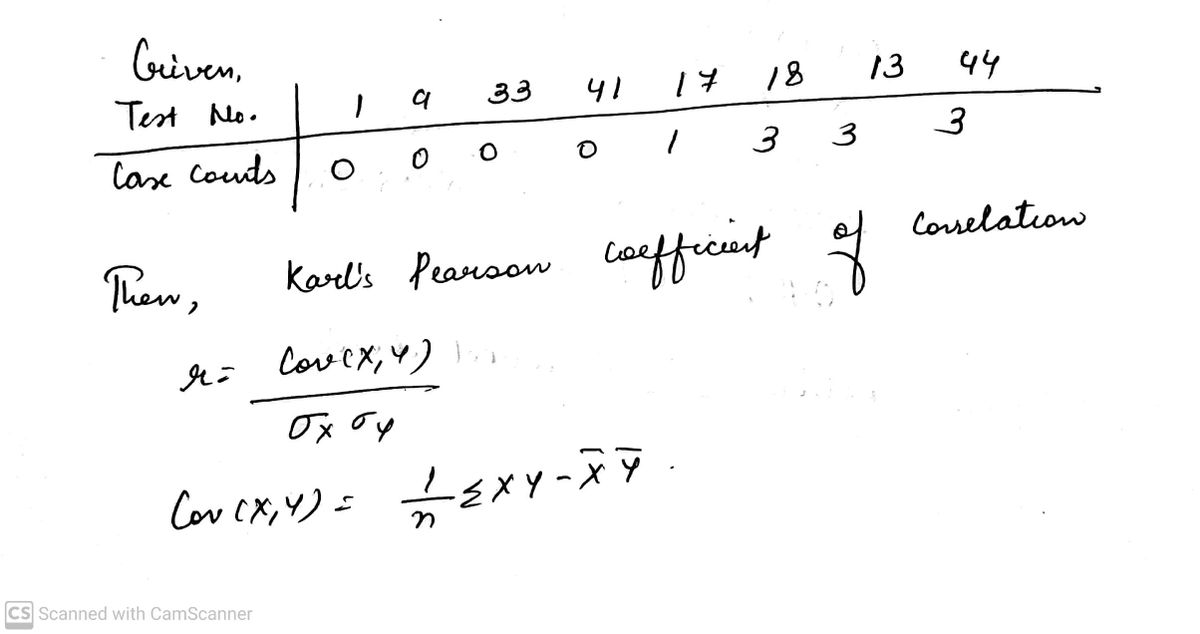 Given,
Test No. 1 9 33 41 17 18 13 44
Case Counts 0 0 0 0 1 3 3 3
Then, Karl's Pearson coefficient of Correlation
r = Cov(X,Y)
σx σy
Cov (X,Y) = 1/n ΣXY - X̅ Y̅ .
CS Scanned with CamScanner